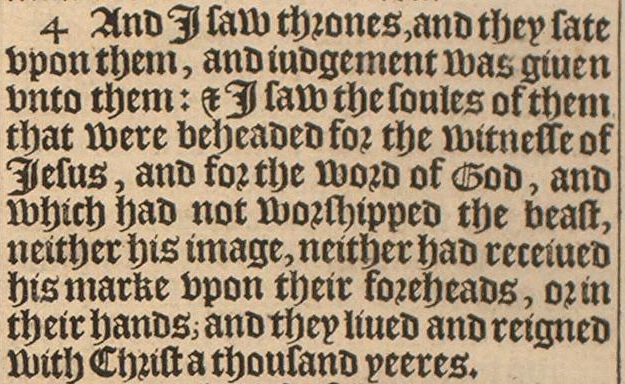 4 And I ſaw thꝛones, and they ſate
vpon them, and iudgement was giuen
vnto them: & I ſaw the ſoules of them
that were beheaded foꝛ the witneſſe of
Jeſus, and foꝛ the woꝛd of God, and
which had not woꝛſhipped the beaſt,
neither his image, neither had receiued
his marke vpon their foꝛeheads, oꝛ in
their hands; and they liued and reigned
with Chꝛiſt a thouſand yeeres.